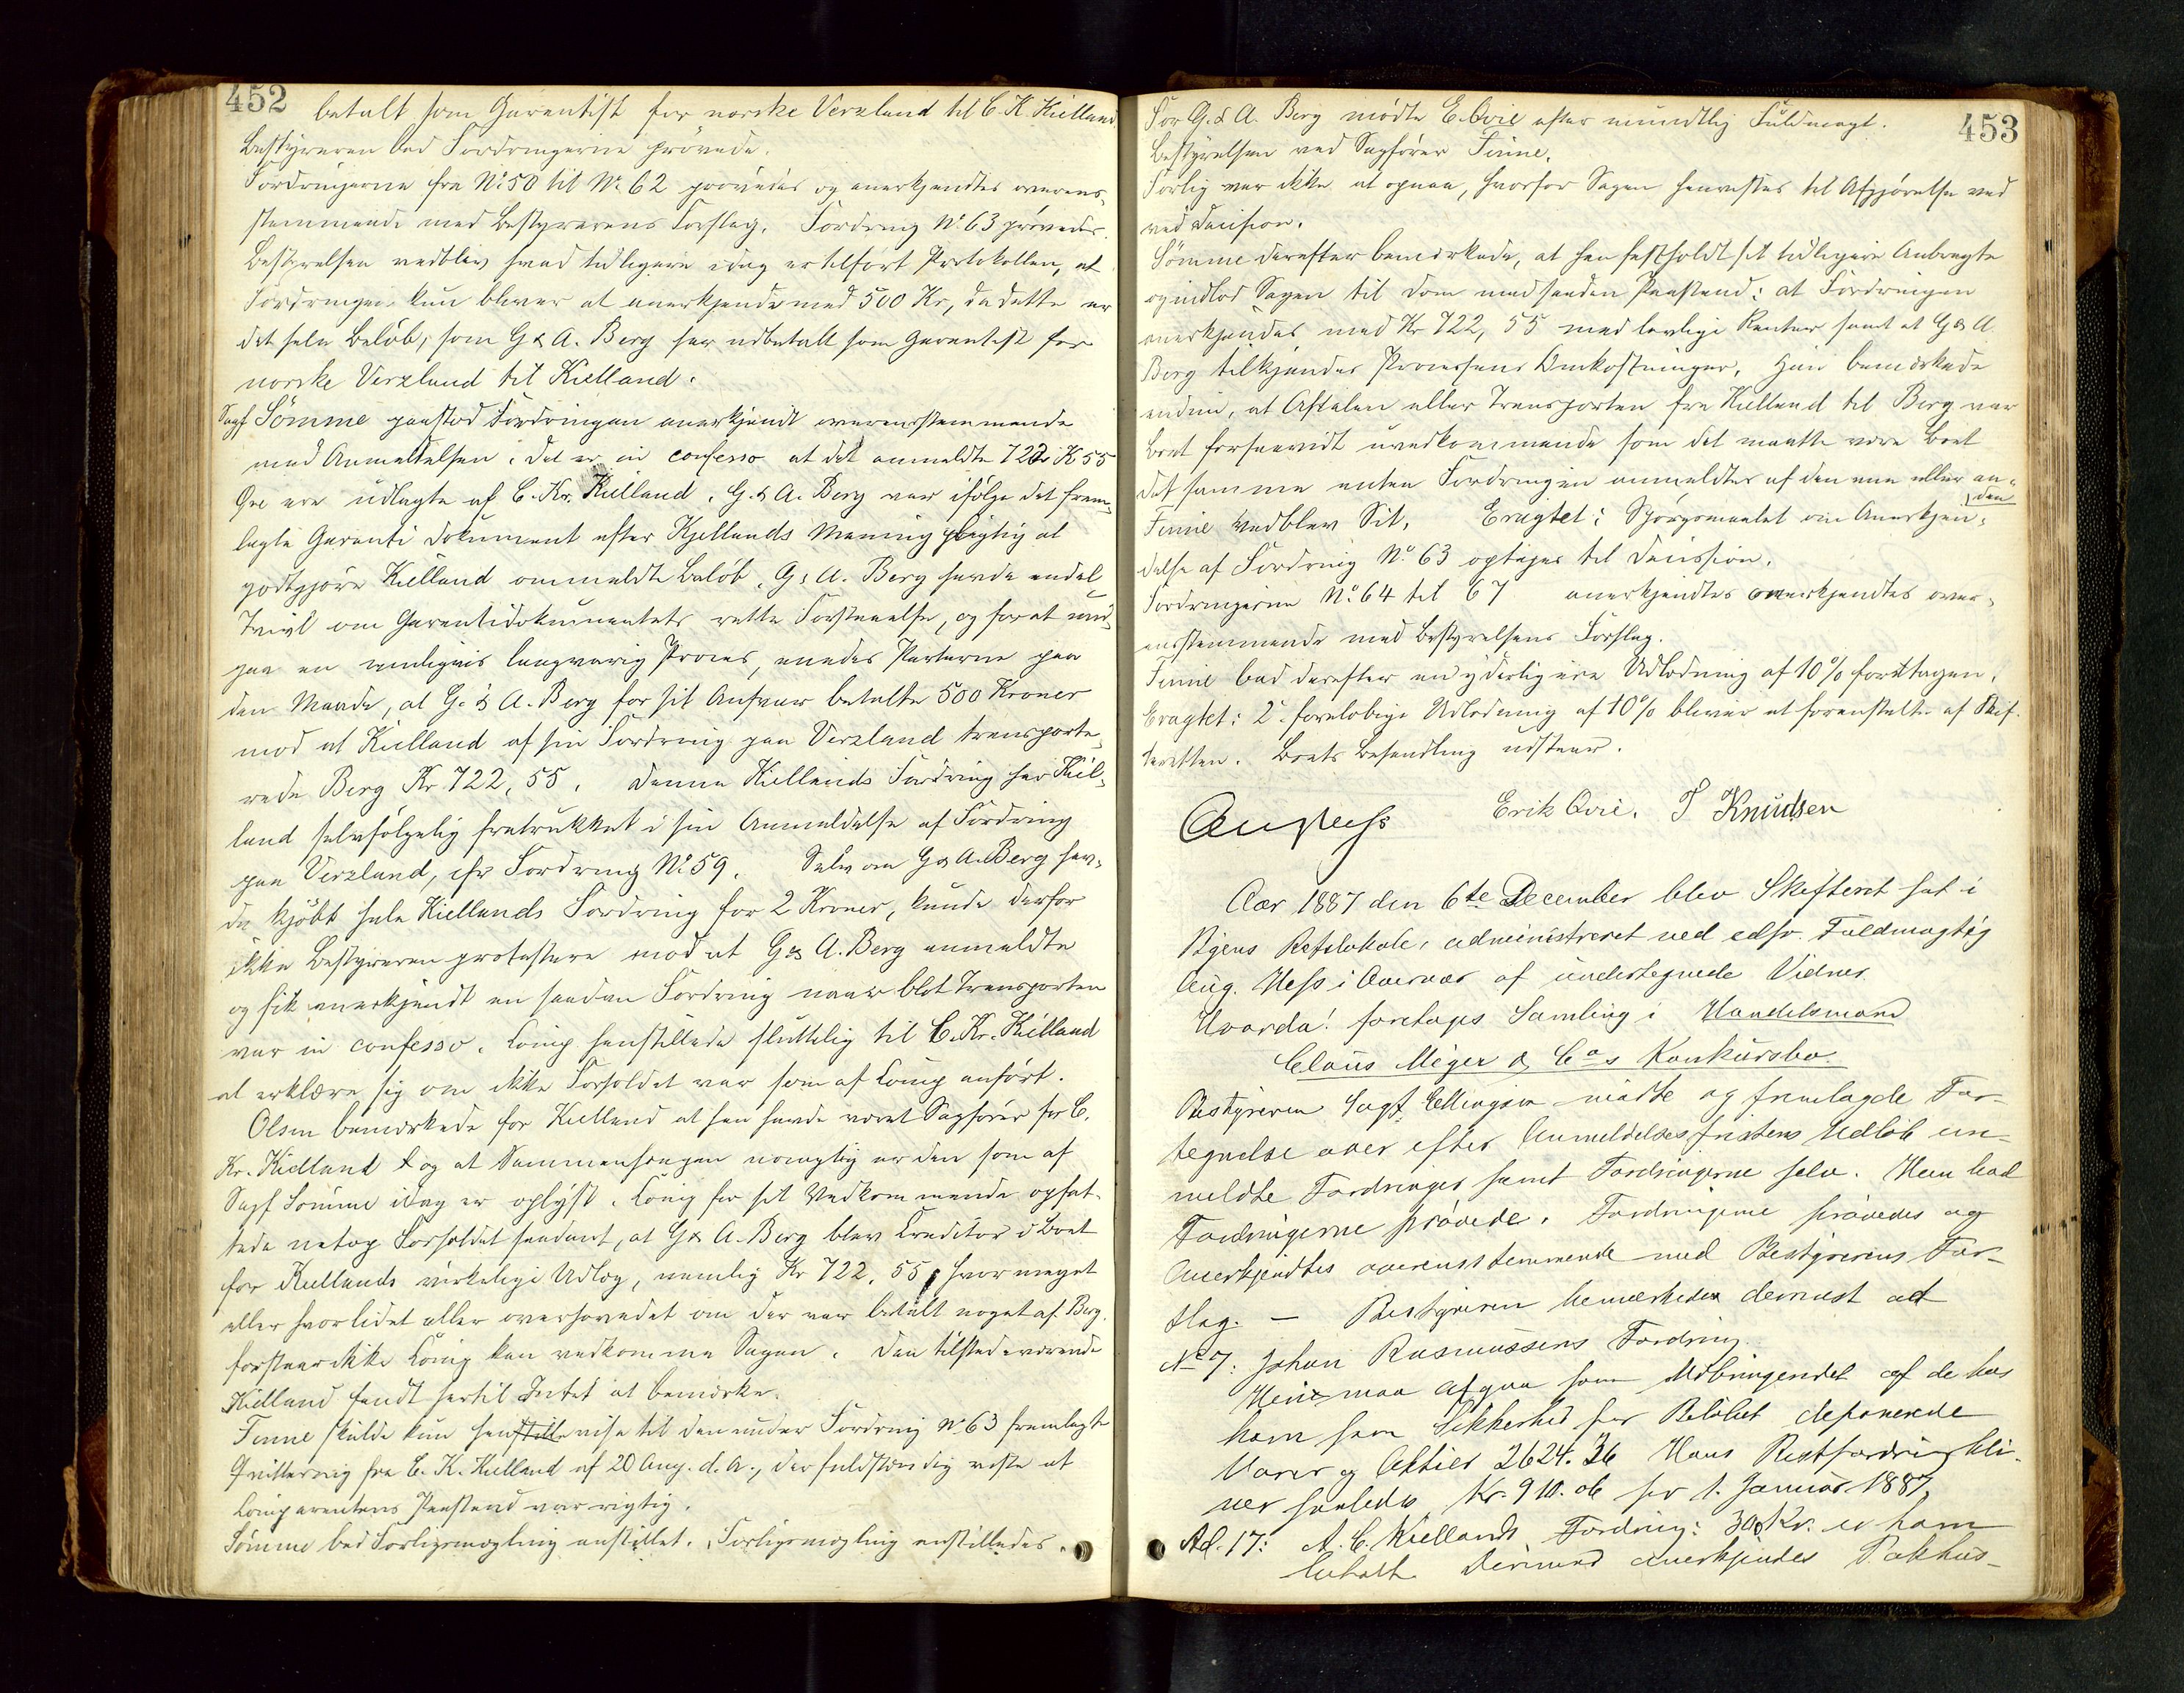 452
betalt som Garantist for norske Verzland til C. K. Kielland.
Bestyreren bad Fordringerne prøvede.
Fordringerne fra No 50 til No 62 prøvedes og anerkjendtes overens-
stemmende med Bestyrerens Forslag. Fordring No 63 prøvedes.
Bestyrelsen vedblev hvad tidligere idag er tilført Protokollen, at
Fordringen kun bliver at anerkjende med 500 Kr, da dette er
det hele Beløb, som G & A. Berg har udbetalt som Garantist for
norske Verzland til Kielland.
Sagf Sømme paastod Fordringen anerkjendt overensstemmende
med Anmeldelsen. Det er in confesso at det anmeldte 722 K 55
Øre ere udlagte af C. Kr. Kielland. G. & A. Berg var ifølge det frem-
lagte Garanti Dokument efter Kjellands Mening pligtig at
godtgjøre Kielland anmeldte Beløb. G & A. Berg havde endel
Tvivl om Garantidokumentets rette Forstaaelse, og for at und-
gaa en muligens langvarig Proces, enedes Parterne paa
den Maade, at G. & A. Berg for sit Ansvar betalte 500 Kroner
mod at Kielland af sin Fordring paa Verzland transporte-
rede Berg Kr. 722,55. Denne Kiellands Fordring har Kiel-
land selvfølgelig fratrukket i sin Anmeldelse af Fordring
paa Verzland, cfr Fordring No 59. Selv om G & A. Berg hav-
de kjøbt hele Kiellands Fordring for 2 Kroner, kunde derfor
ikke Bestyreren protestere mod at G & A. Berg anmeldte
og fik anerkjendt en saadan Fordring naar blot Transporten
var in confesso. Comp henstillede sluttelig til C. Kr. Kielland
at erklære sig om ikke Forholdet var som af Comp anført.
Olsen bemærkede for Kielland at han havde været Sagfører for C.
Kr. Kielland og at Sammenhængen nøiagtig er den som af
Sagf Sømme idag er oplyst. Comp for sit Vedkommende opfat-
tede netop Forholdet saadant, at G & A. Berg blev Creditor i Boet
for Kiellands virkelige Udlæg, nemlig Kr 722,55, hvor meget
eller hvor lidet eller overhovedet om der var betalt noget af Berg
forstaar ikke Comp kan vedkomme Sagen. Den tilstedeværende
Kielland fandt hertil Intet at bemærke.
Finne skulde kun henvise til den under Fordring No 63 fremlagte
Qvittering fra C. K. Kielland af 20 Aug. d. A., der fuldstændig viste at
Comparentens Paastand var rigtig.
Sømme bad Forligsmægling anstillet. Forligsmægling anstilledes.
453
For G. & A. Berg mødte E. Qvie efter mundtlig Fuldmagt.
Bestyrelsen ved Sagfører Finne.
Forlig var ikke at opnaa, hvorfor Sagen henvistes til Afgjørelse ved
ved Decision.
Sømme derefter bemærkede, at han fastholdt sit tidligere Anbragte
og indlod Sagen til Dom med saadan Paastand: at Fordringen
anerkjendes med Kr 722,55 med lovlige Renter samt at G & A
Berg tilkjendes Processens Omkostninger. Han bemærkede
endnu, at Aftalen eller Transporten fra Kielland til Berg var
Boet forsaavidt uvedkommende som det maatte være Boet
det samme enten Fordringen anmeldtes af den ene eller an-
den
Finne vedblev Sit. Eragtet: Spørgsmaalet om Anerkjen-
delse af Fordring No 63 optages til Decission.
Fordringerne No 64 til 67 anerkjendtes anerkjendtes over-
ensstemmende med Bestyrelsens Forslag.
Finne bad derefter en yderligere Udlodning af 10% foretagen.
Eragtet: 2. foreløbige Udlodning af 10% bliver at foranstalte af Skif-
teretten. Boets Behandling udstaar.
Aug Hess Erik Qvie. T Knudsen
Aar 1887 den 6te December blev Skifteret sat i
Byens Retslokale, administreret ved edsv. Fuldmægtig
Aug. Hess i Overvær af undertegnede Vidner.
Hvorda! foretages Samling i Handelsmand
Claus Meyer & Co s Konkursbo.
Bestyreren Sagf. Ellingsen mødte og fremlagde For-
tegnelse over efter Anmeldelsesfristens Udløb an-
meldte Fordringer samt Fordringerne selv. Han bad
Fordringerne prøvede. Fordringerne prøvedes og
Anerkjendtes overensstemmende med Bestyrerens For-
slag. — Bestyreren bemærkede dernæst ad
No 7: Johan Rasmussens Fordring.
Heri maa afgaa som Udbringendet af de hos
ham som Sikkerhed for Beløbet deponerede
Varer og Aktier 2624.36 Hans Restfordring bli-
ver saaledes Kr. 910.06 pr 1. Januar 1887.
Ad. 17: A. C. Kiellands Fordring: 300 Kr. er ham
betalt Derimod anerkjendes Pakhus-